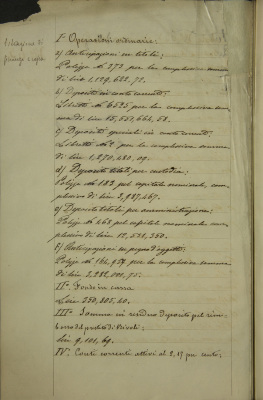 I° Operazioni ordinarie:
a) Anticipazioni su titoli;
Polizze N° 273 per la complessiva somma
di lire 1,129,622,72.
b) Depositi in conto corrente;
Libretti N° 6525 per la complessiva som-
ma di lire
c) Depositi speciali in conto corrente;
Libretti N° per la complessiva somma
di lire 1,270,420,09.
d) Depositi titoli per custodia;
Polizze N° 183 pel capitale nominale, com-
plessivo di lire 3,927,467.
e) Depositi titoli per amministrazione;
Polizze N° 468 pel capitale nominale com-
plessivo di lire 12,538,350.
f) Anticipazioni su pegno d'oggetti;
Polizze N° 164,957 per la complessiva somma
di lire 2,282,001,75.
II° Fondo in cassa
Lire 350,805,60.
III° Somma in residuo depositi pel rim-
borso del prestito di
lire 9,101,69.
IV° Conti correnti attivi al 2,17 per cento;